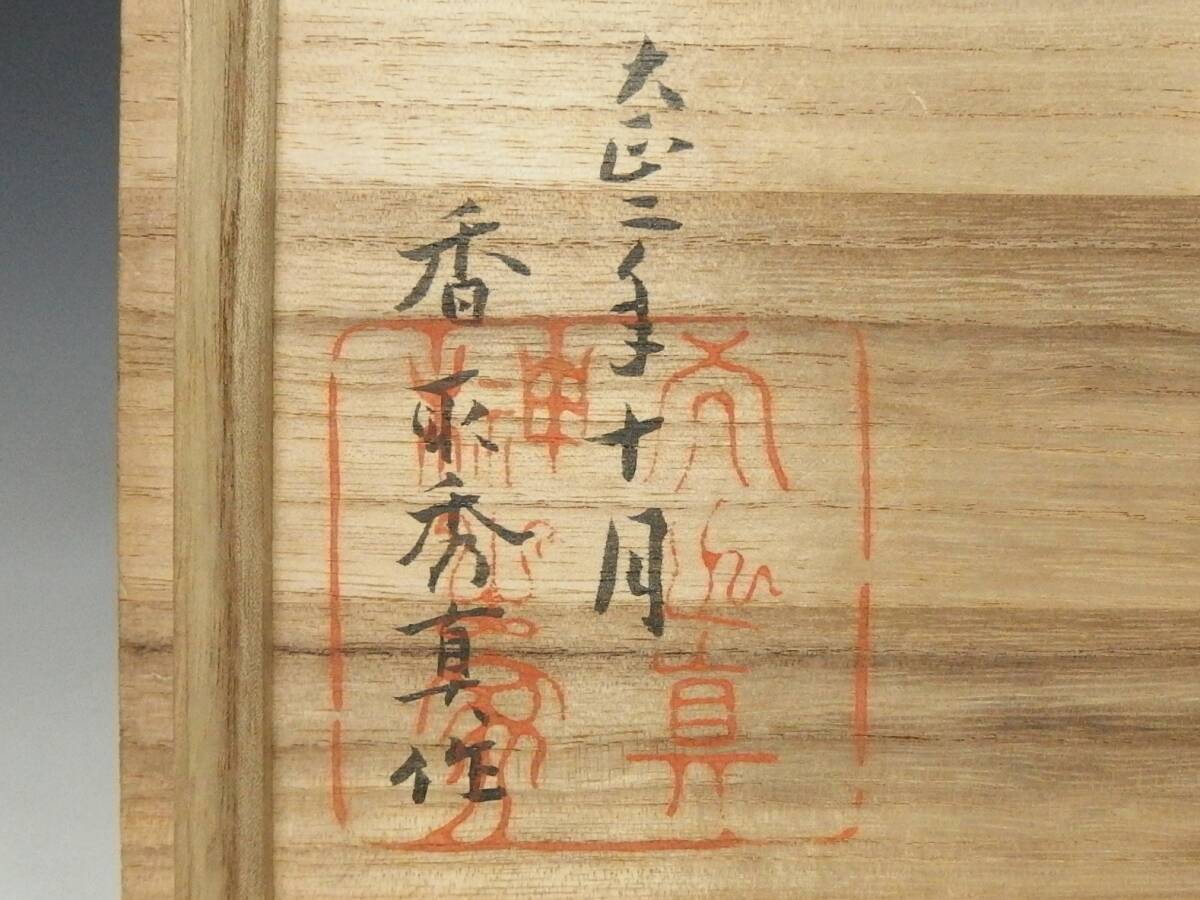 大正二年十月
香取秀真作